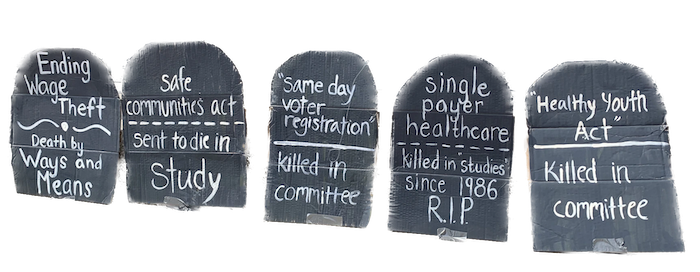 Ending
Wage
Theft
Death by
Ways and
Means
Safe
communities act
sent to die in
Study
"Same day
voter
registration"
killed in
committee
single
payer
healthcare
killed in studies'
since 1986
R.I.P
"Healthy Youth
Act"
Killed in
committee